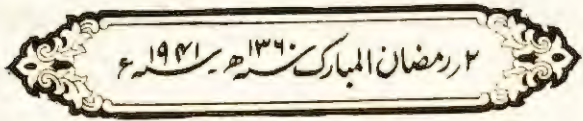 ۲ر رمضان المبارک ۱۳۶۰ھ۔ ۱۹۴۱ء